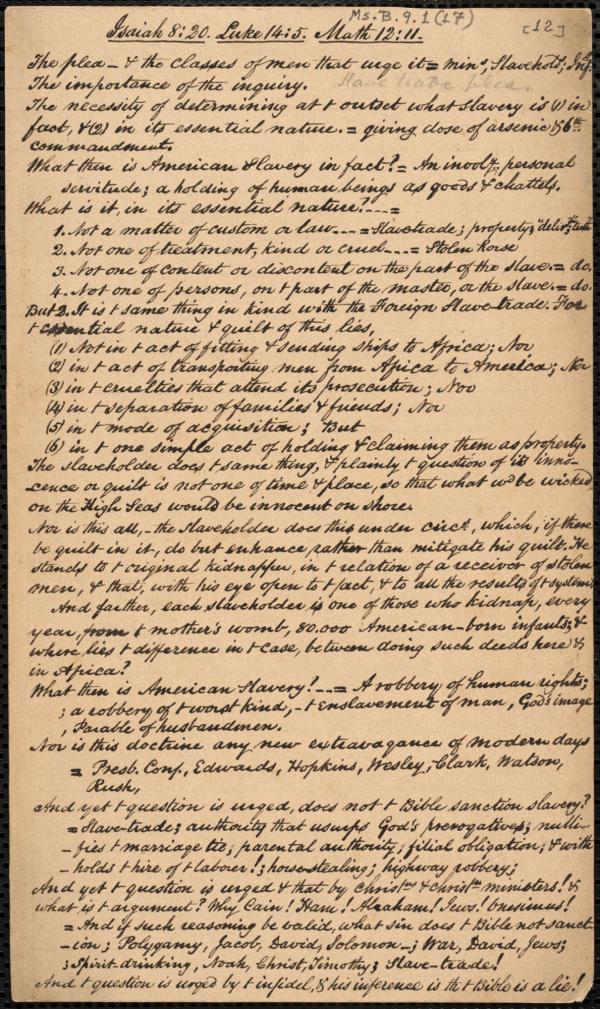 Ms. B. 9. 1 (17)
[12]
Isaiah 8:20. Luke 14:5. Math 12:11.
The plea – & the classes of men that urge it = mins, Slavehold., Inf.
Slave trade plea.
The importance of the inquiry.
The necessity of determining at t outset what slavery is (1) in
fact, & (2) in its essential nature. = giving dose of arsenic & 6th
commandment.
What then is American Slavery in fact? = An invol.y, personal
servitude; a holding of human beings as goods & chattels.
What is it, in its essential nature? --- =
1. Not a matter of custom or law --- = Slavetrade; property;
2. Not one of treatment, kind or cruel --- = Stolen horse
3. Not one of content or discontent on the part of the slave. = do.
4. Not one of persons, on t part of the master, or the slave. = do.
But 2. It is t same thing in kind with the Foreign Slave-trade. For
t essential nature & guilt of this lies,
(1) Not in t act of fitting & sending ships to Africa; Nor
(2) in t act of transporting men from Africa to America; Nor
(3) in t cruelties that attend its prosecution; Nor
(4) in t separation of families & friends; Nor
(5) in t mode of acquisition; But
(6) in t one simple act of holding & claiming them as property.
The slaveholder does t same thing, & plainly t question of its inno-
-cence or guilt is not one of time & place, so that what wd be wicked
on the High Seas would be innocent on Shore.
Nor is this all, – the Slaveholder does this under circs., which, if there
be guilt in it, do but enhance, rather than mitigate his guilt. He
stands to t original kidnapper, in t relation of a receiver of stolen
men, & that, with his eye open to t fact, & to all the results of t system.
And farther, each slaveholder is one of those who kidnap, every
year, from t mother's womb, 80.000 American-born infants; &
where lies t difference in t case, between doing such deeds here &
in Africa?
What then is American Slavery! --- = A robbery of human rights;
; a robbery of t worst kind, – t enslavement of man, God's image
, Parable of husbandmen.
Nor is this doctrine any new extravagance of modern days
= Presb. Conf., Edwards, Hopkins, Wesley, Clark, Watson,
Rush,
And yet t question is urged, does not t Bible sanction slavery?
= Slave-trade; authority that usurps God's prerogatives; nulli-
-fies t marriage tie; parental authority; filial obligation; & with-
-holds t hire of t labourer!; horse-stealing; highway robbery;
And yet t question is urged & that by christns & christn ministers! &
what is t argument? Why Cain! Ham! Abraham! Jews! Onesimus!
= And if such reasoning be valid, what sin does t Bible not sanct-
-ion; Polygamy, Jacob, David, Solomon –; War, David, Jews;
; Spirit-drinking, Noah, Christ, Timothy; Slave-trade!
And t question is urged by t infidel, & his inference is tht t Bible is a lie!